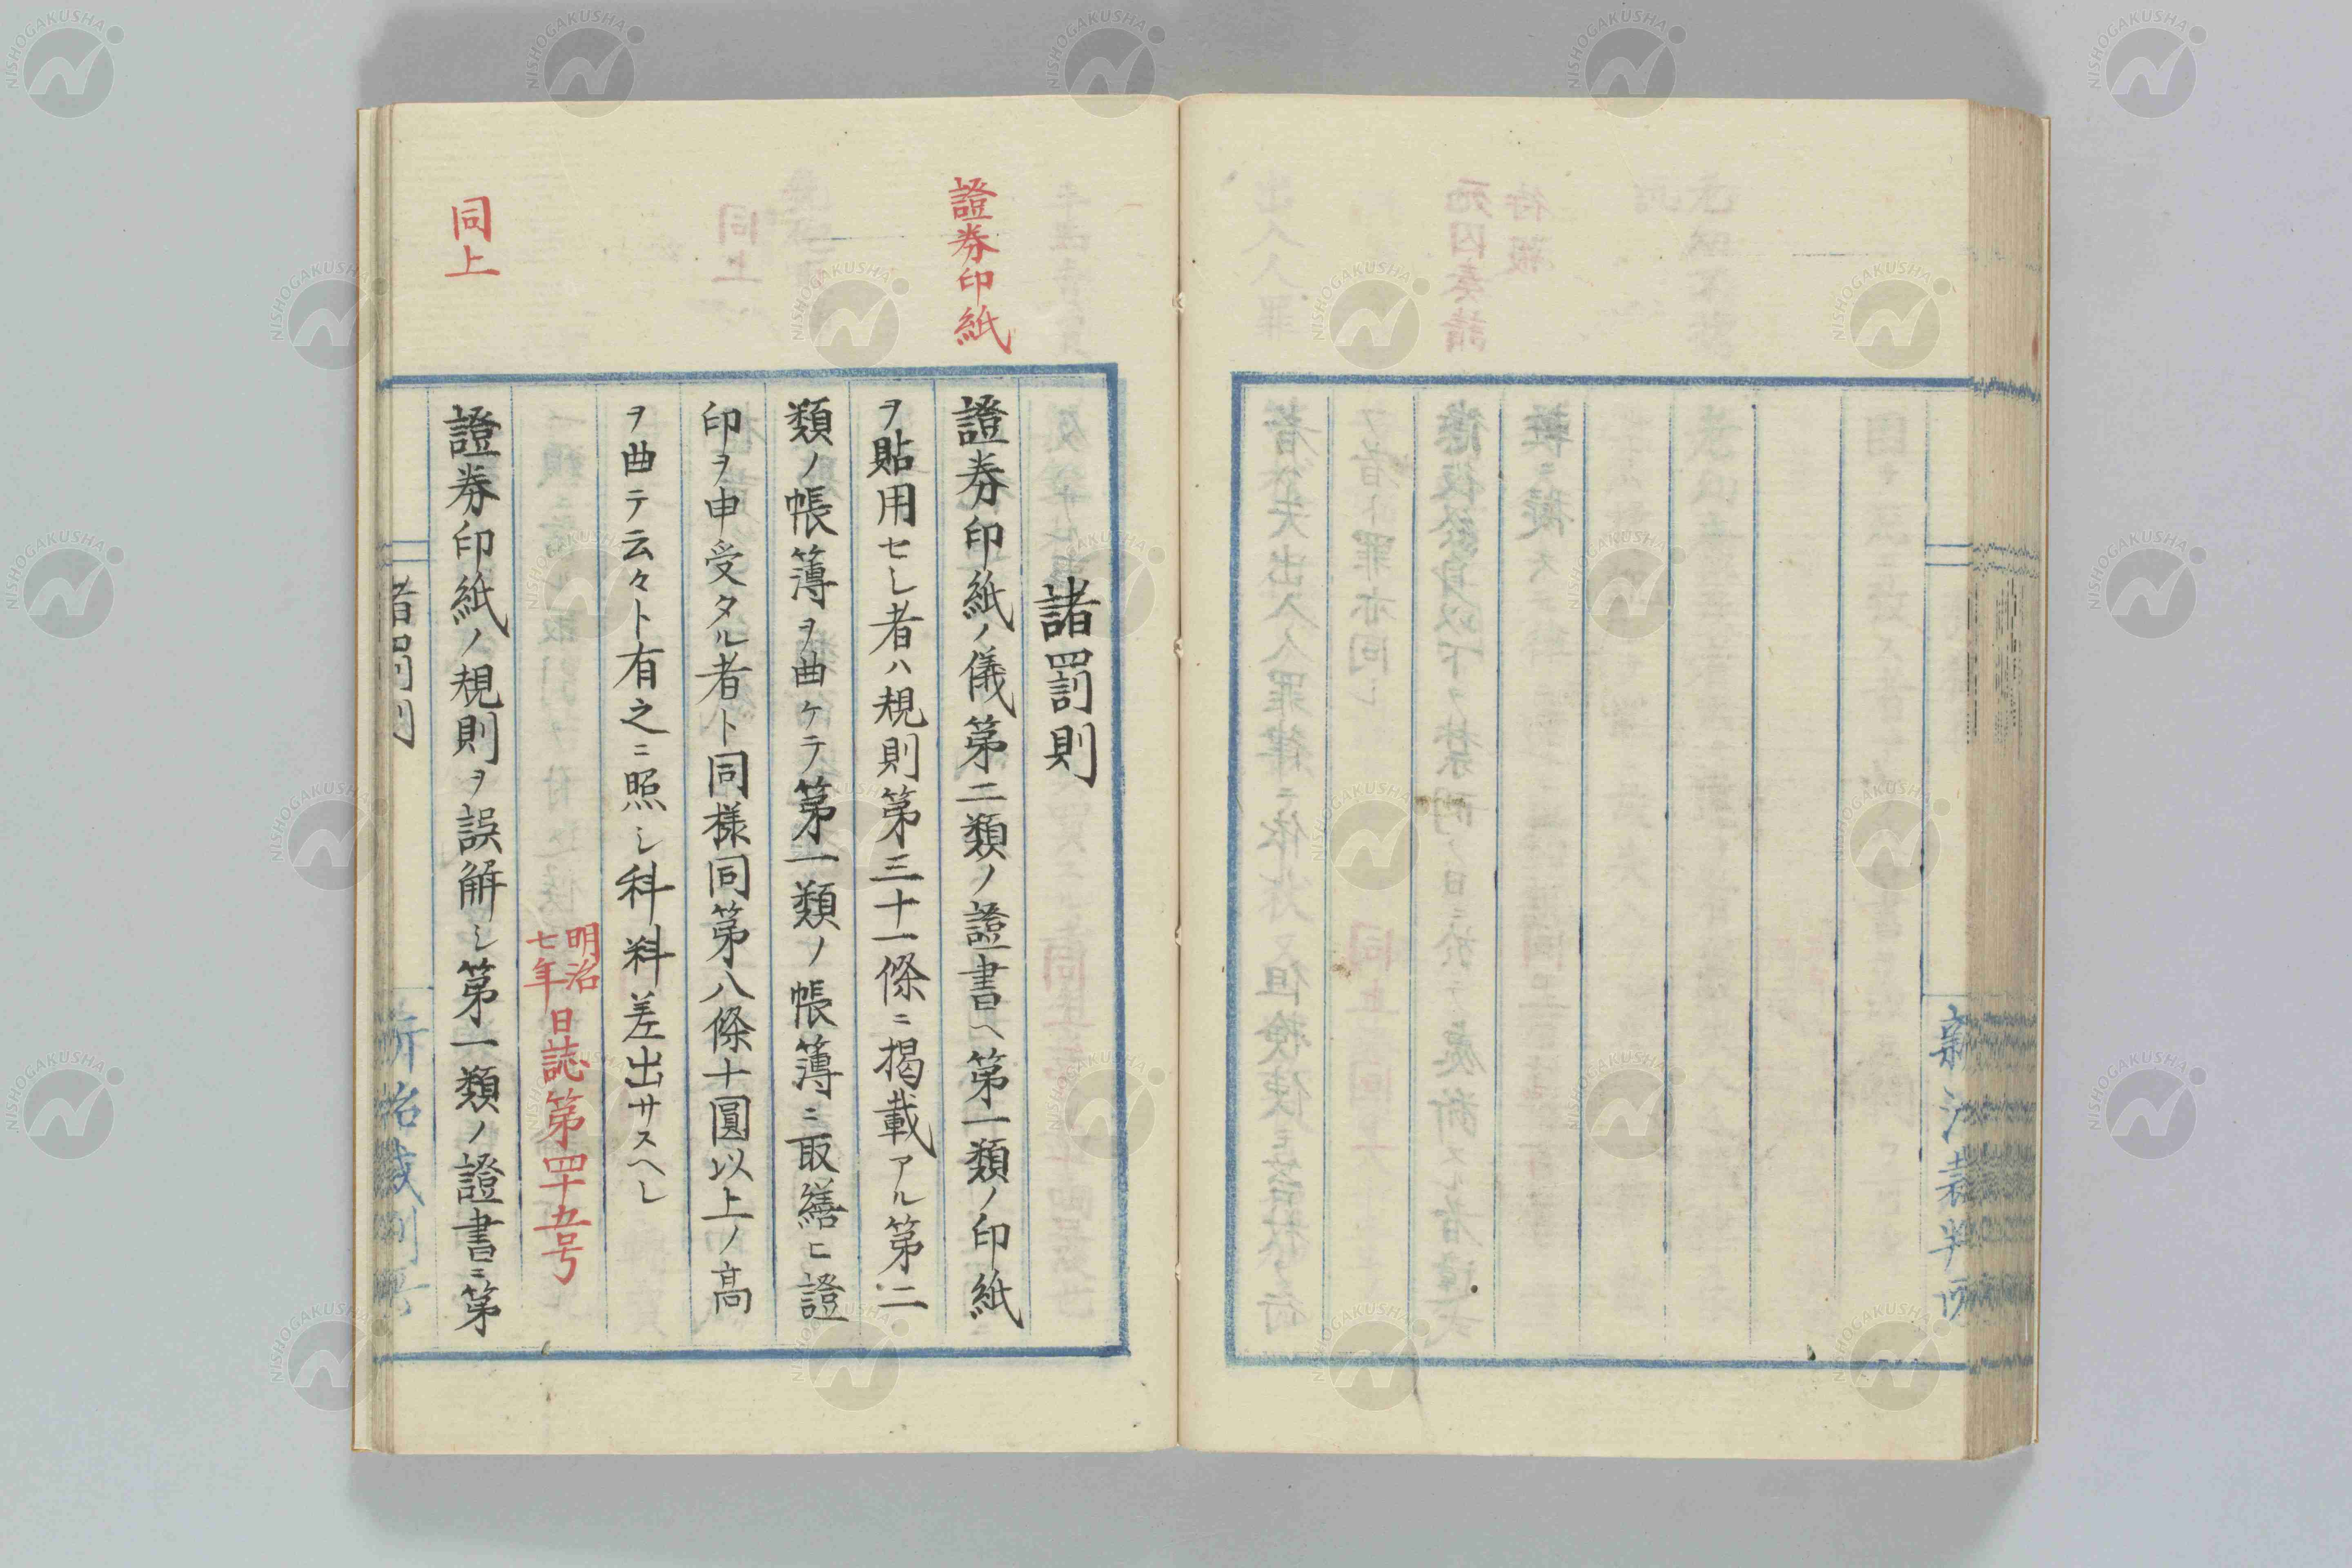 新治裁判所
諸罰則
證券印紙
證券印紙ノ儀第二類ノ證書ヘ第一類ノ印紙
ヲ貼用セシ者ハ規則第三十一條ニ掲載アル第二
類ノ帳簿ヲ曲ケテ第一類ノ帳簿ニ取繕ヒ證
印ヲ申受タル者ト同様同第八條十圓以上ノ高
ヲ曲テ云々ト有之ニ照シ科料差出サスヘシ
明治
七年
日誌第四十五号
同上
證券印紙ノ規則ヲ誤解シ第一類ノ證書ニ第
諸罰則
新治裁判所
NISHOGAKUSHA